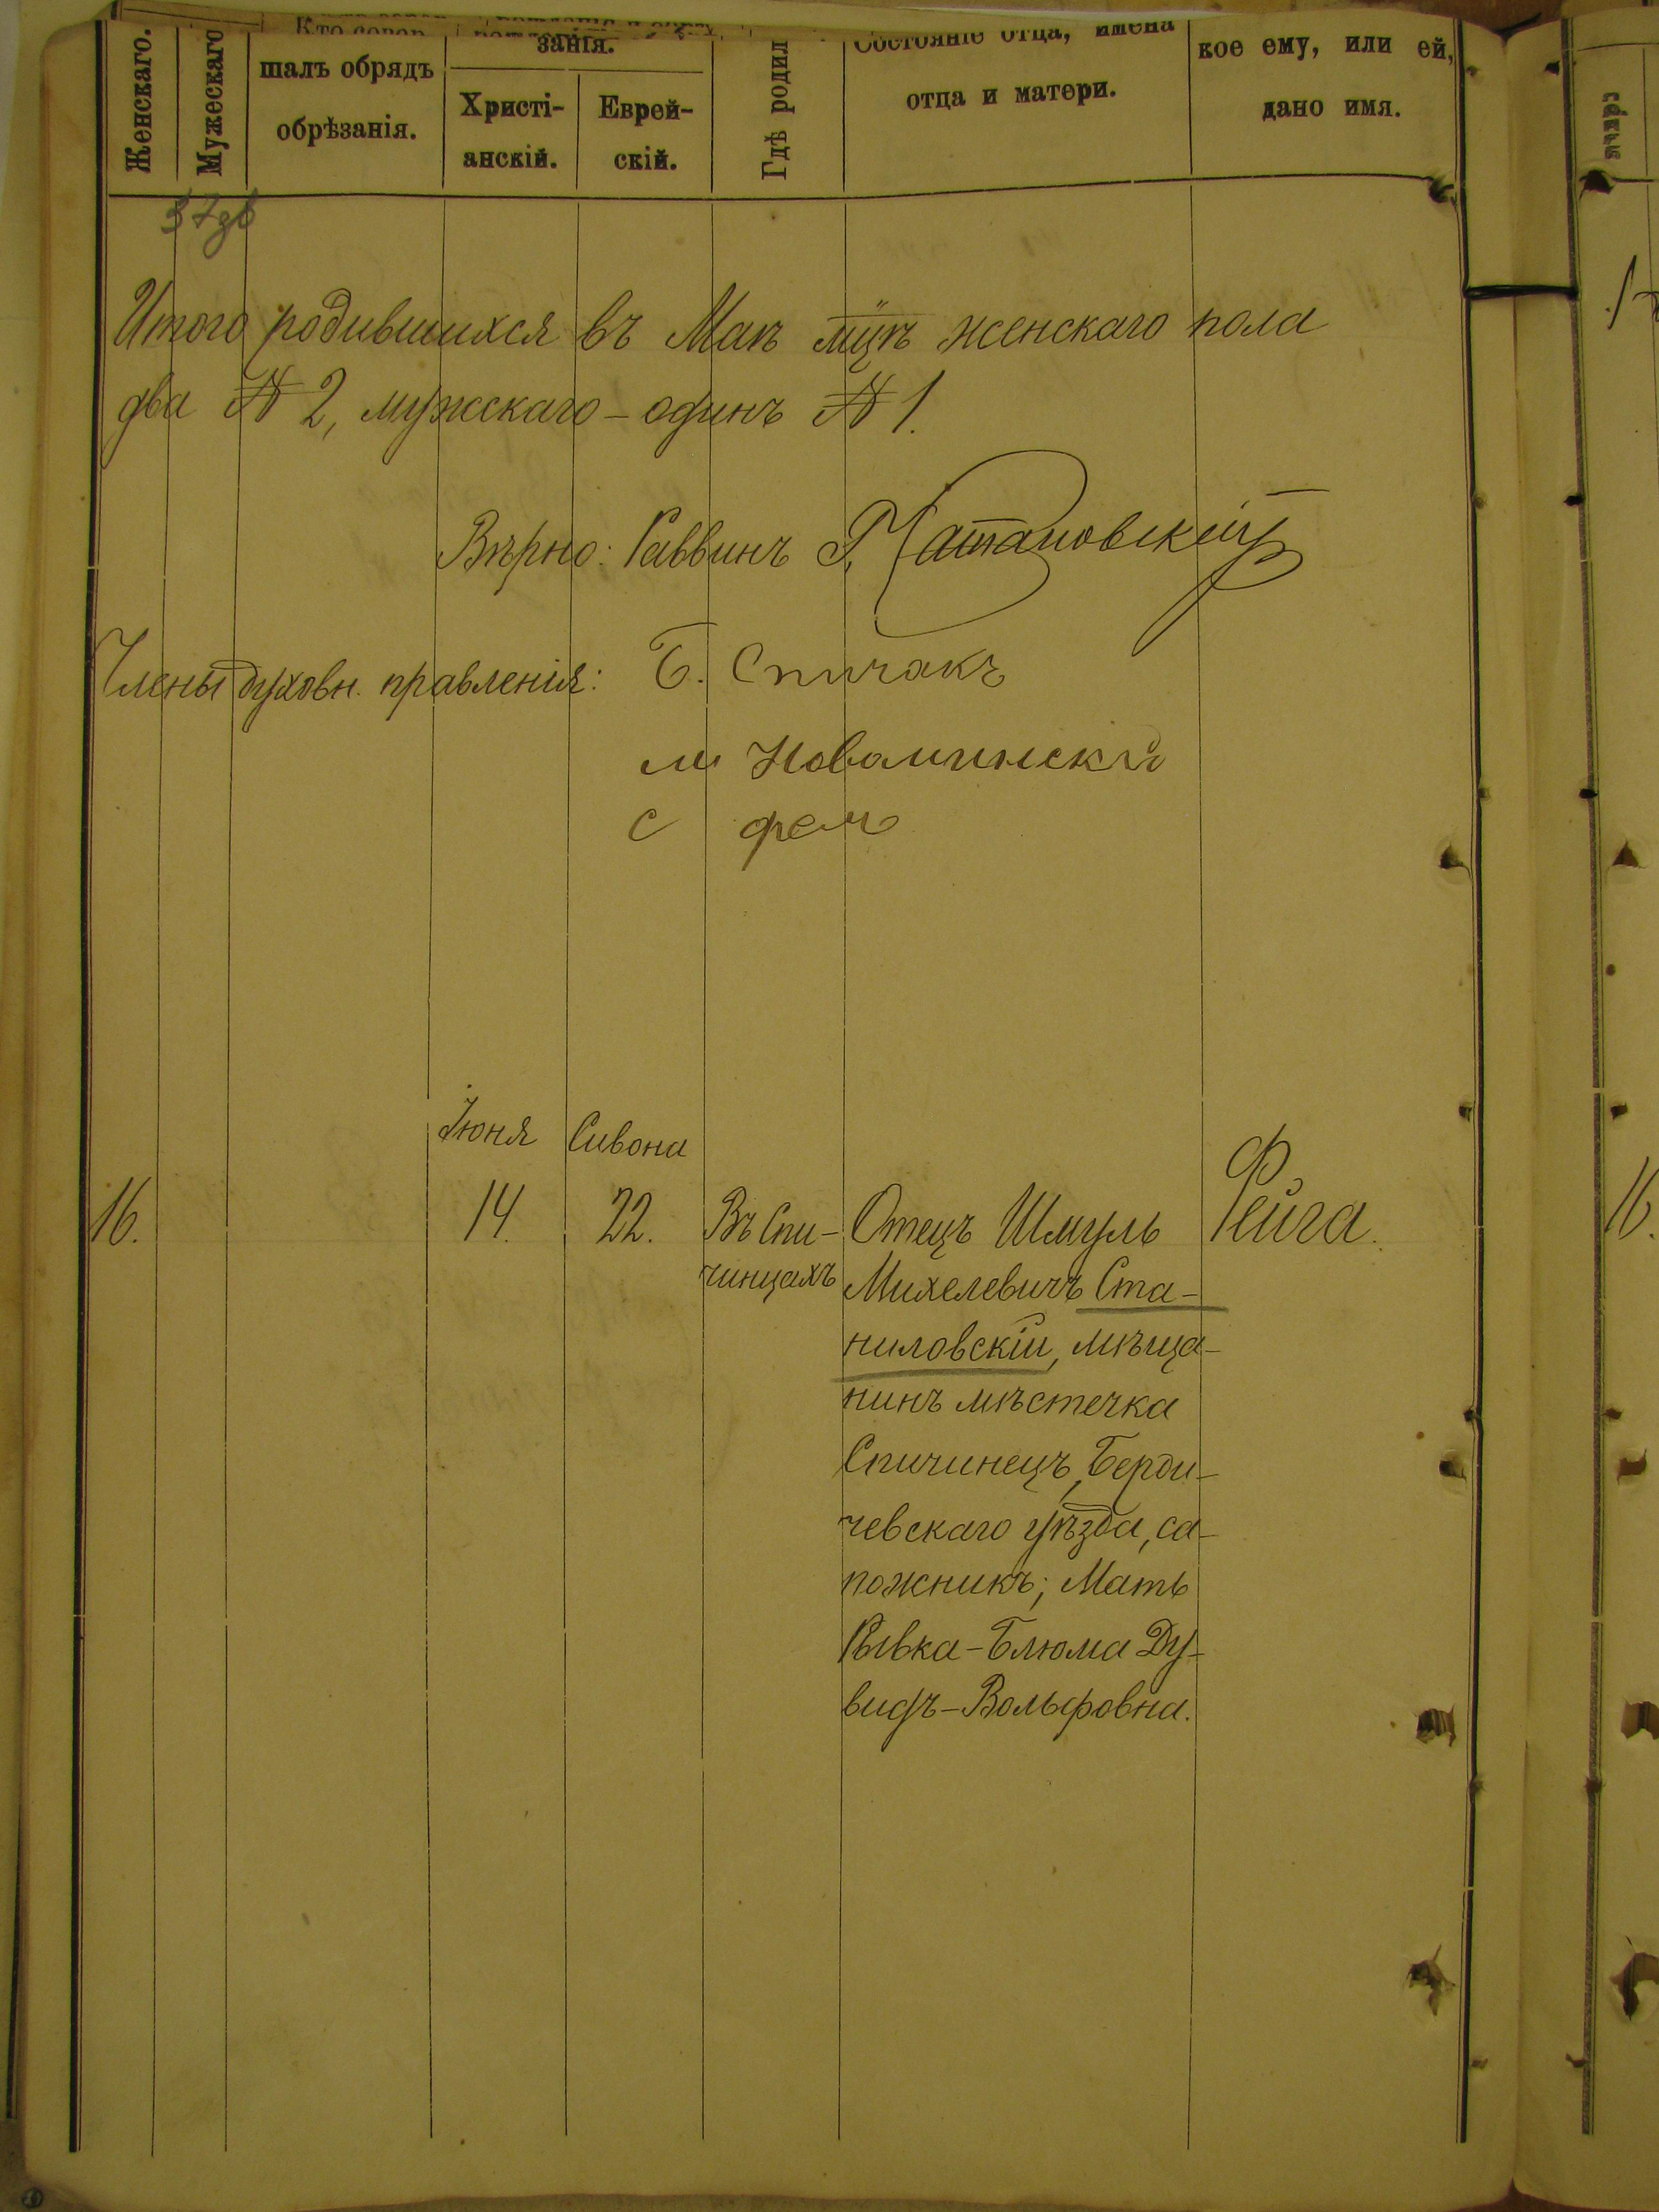 Женскаго.
Мужескаго
шалъ обрядъ
обрѣзанія.
занія.
Христі-
анскій.
Еврей-
скій.
Гдѣ родил
Состояніе отца, имена
отца и матери.
кое ему, или ей,
дано имя.
Итого родившихся въ Маѣ м-цѣ женскаго пола
два № 2, мужскаго – одинъ № 1.
Вѣрно: Раввинъ
Члены духовн. правленія: Б. Спичакъ
м Новоминскій
с
Іюня Сивона
16. 14. 22. Въ Спи- Отецъ Шмуль Фейга. 16.
чинцахъ Михелевичъ Ста-
ниловскій, мѣща-
нинъ мѣстечка
Спичинецъ, Берди-
чевскаго уѣзда, са-
пожникъ; Мать
Рывка-Блюма Ду-
видъ-Вольфовна.